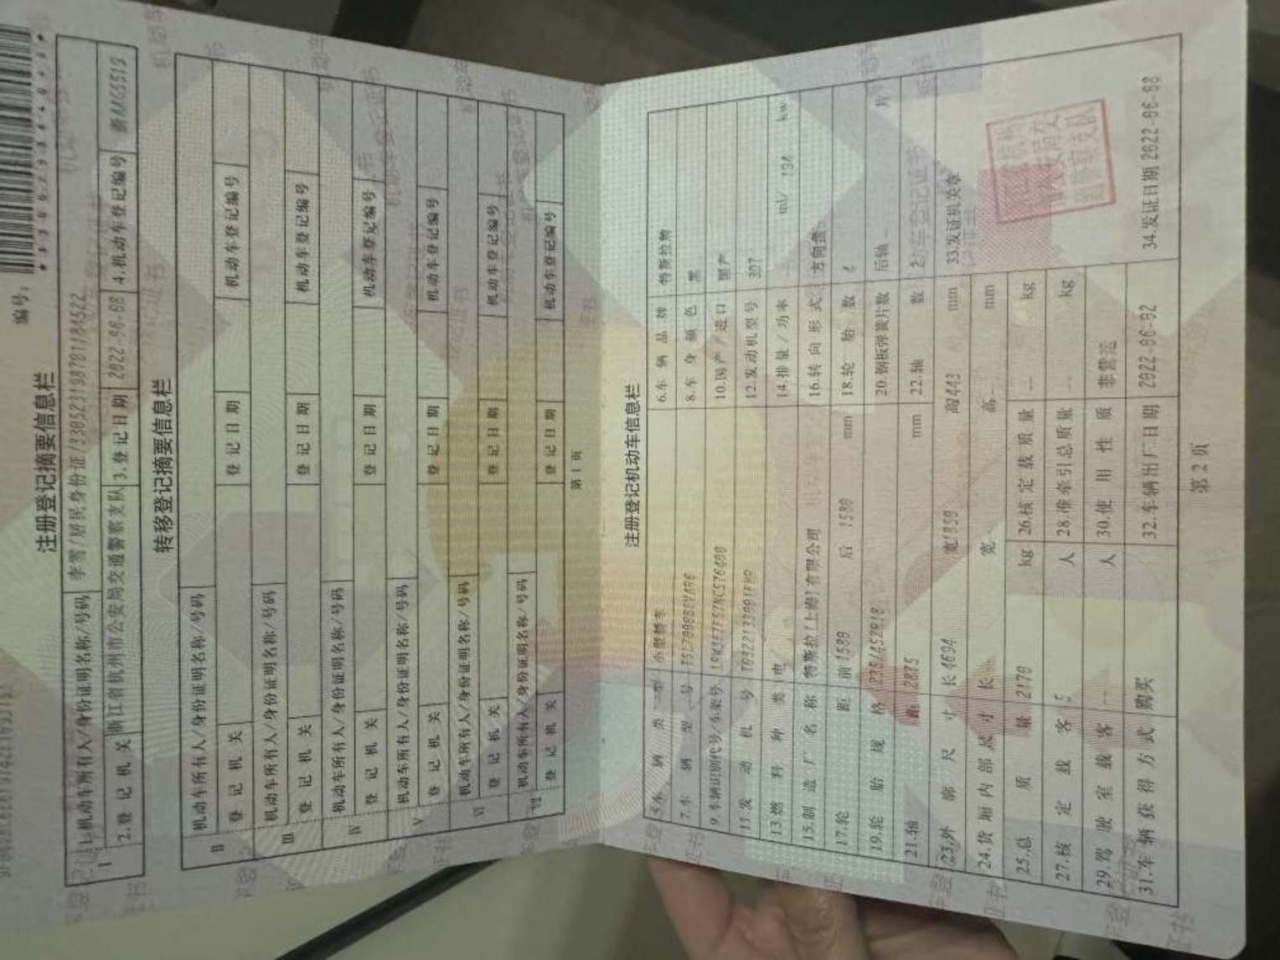 编号：
注册登记摘要信息栏
I 1.机动车所有人/身份证明名称/号码 李雪/居民身份证/330523198701184522
2.登记机关 浙江省杭州市公安局交通警察支队 3.登记日期 2022-06-08 4.机动车登记编号
转移登记摘要信息栏
II 机动车所有人/身份证明名称/号码
登记机关 登记日期 机动车登记编号
III 机动车所有人/身份证明名称/号码
登记机关 登记日期 机动车登记编号
IV 机动车所有人/身份证明名称/号码
登记机关 登记日期 机动车登记编号
V 机动车所有人/身份证明名称/号码
登记机关 登记日期 机动车登记编号
VI 机动车所有人/身份证明名称/号码
登记机关 登记日期 机动车登记编号
VII 机动车所有人/身份证明名称/号码
登记机关 登记日期 机动车登记编号
第 1 页
注册登记机动车信息栏
5.车辆类型 小型轿车 6.车辆品牌 特斯拉牌
7.车辆型号 8.车身颜色 黑
9.车辆识别代号/车架号 10.国产/进口 国产
11.发动机号 12.发动机型号 3D7
13.燃料种类 电 14.排量/功率 ml/ 194 kw
15.制造厂名称 特斯拉(上海)有限公司 16.转向形式 方向盘
17.轮距 前1580 后 1580 mm 18.轮胎数 4
19.轮胎规格 235/45ZR18 20.钢板弹簧片数 后轴 片
21.轴距 2875 mm 22.轴数 2
23.外廓尺寸 长4694 宽1850 高1443 mm 33.发证机关章
24.货厢内部尺寸 长 宽 高 mm
25.总质量 2170 kg 26.核定载质量 -- kg
27.核定载客 5 人 28.准牵引总质量 -- kg
29.驾驶室载客 -- 人 30.使用性质 非营运
31.车辆获得方式 购买 32.车辆出厂日期 2022-06-02 34.发证日期 2022-06-08
第 2 页